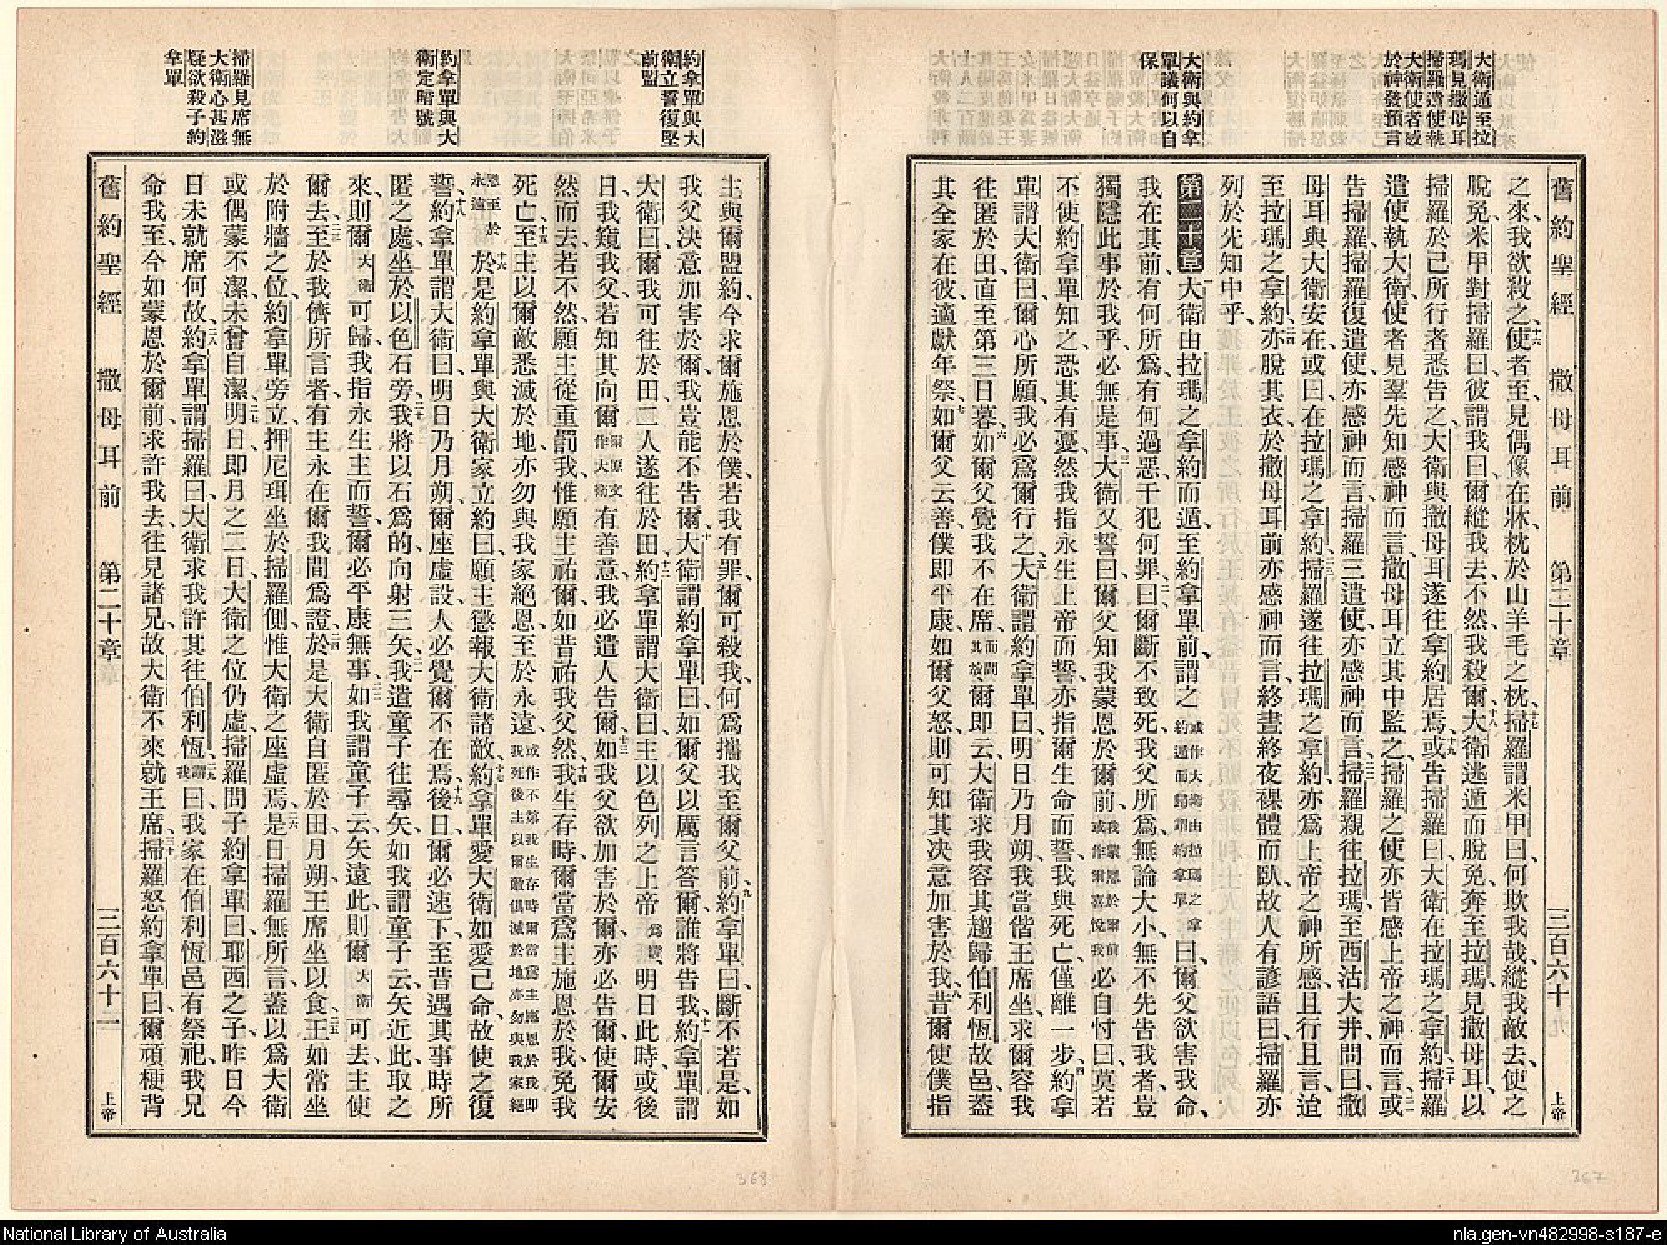 大衛遁至拉
瑪見撒母耳
掃羅遣使執
大衛使者感
於神發預言
大衛與約拿
單議何以自
保
舊約聖經 撒母耳前 第二十章 上帝
之來、我欲殺之、使者至、見偶像在牀、枕於山羊毛之枕、掃羅謂米甲曰、何欺我哉、縱我敵去、使之
脫免、米甲對掃羅曰、彼謂我曰、爾縱我去、不然、我殺爾、大衛逃遁而脫免、奔至拉瑪、見撒母耳、以
掃羅於己所行者悉告之、大衛與撒母耳遂往拿約居焉、或告掃羅曰、大衛在拉瑪之拿約、掃羅
遣使執大衛、使者見羣先知感神而言、撒母耳立其中監之、掃羅之使亦皆感上帝之神而言、或
告掃羅、掃羅復遣使、亦感神而言、掃羅三遣使、亦感神而言、掃羅親往拉瑪、至西沽大井、問曰、撒
母耳與大衛安在、或曰、在拉瑪之拿約、掃羅遂往拉瑪之拿約、亦爲上帝之神所感、且行且言、迨
至拉瑪之拿約、亦脫其衣、於撒母耳前亦感神而言、終晝終夜裸體而臥、故人有諺語曰、掃羅亦
列於先知中乎、
第二十章 大衛由拉瑪之拿約而遁、至約拿單前、謂之 或作大衛由拉瑪之拿約遁而歸謂約拿單 曰、爾父欲害我命、
我在其前、有何所爲、有何過惡、干犯何罪、曰、爾斷不致死、我父所爲、無論大小、無不先告我者、豈
獨隱此事於我乎、必無是事、大衛又誓曰、爾父知我蒙恩於爾前、我蒙恩於爾前或作爾喜悅我 必自忖曰、莫若
不使約拿單知之、恐其有憂、然我指永生上帝而誓、亦指爾生命而誓、我與死亡、僅離一步、約拿
單謂大衛曰、爾心所願、我必爲爾行之、大衛謂約拿單曰、明日乃月朔、我當偕王席坐、求爾容我
往匿於田、直至第三日暮、如爾父覺我不在席、而問其故 爾即云、大衛求我容其趨歸伯利恆故邑、蓋
其全家在彼、適獻年祭、如爾父云善、僕即平康、如爾父怒、則可知其決意加害於我、昔爾使僕指
約拿單與大
衛立誓復堅
前盟
約拿單與大
衛定暗號
掃羅見席無
大衛心甚滋
疑欲殺子約
拿單
主與爾盟約、今求爾施恩於僕、若我有罪、爾可殺我、何爲攜我至爾父前、約拿單曰、斷不若是、如
我父決意加害於爾、我豈能不告爾、大衛謂約拿單曰、如爾父以厲言答爾、誰將告我、約拿單謂
大衛曰、爾我可往於田、二人遂往於田、約拿單謂大衛曰、主以色列之上帝爲證、明日此時、或後
日、我窺我父、若知其向爾 爾原文作大衛 有善意、我必遣人告爾、如我父欲加害於爾、亦必告爾、使爾安
然而去、若不然、願主從重罰我、惟願主祐爾、如昔祐我父然、我生存時、爾當爲主施恩於我、免我
死亡、至主以爾敵悉滅於地、亦勿與我家絕恩、至於永遠、或作不第我生存時爾當爲主施恩於我即我死後主以爾敵俱滅於地亦勿與我家絕
恩至於永遠 於是約拿單與大衛家立約曰、願主懲報大衛諸敵、約拿單愛大衛如愛己命、故使之復
誓、約拿單謂大衛曰、明日乃月朔、爾座虛設、人必覺爾不在焉、後日、爾必速下、至昔遇其事時所
匿之處、坐於以色石旁、我將以石爲的、向射三矢、我遣童子往尋矢、如我謂童子云、矢近此、取之
來、則爾 大衛 可歸、我指永生主而誓、爾必平康無事、如我謂童子云、矢遠此、則爾 大衛 可去、主使
爾去、至於我儕所言者、有主永在爾我間爲證、於是大衛自匿於田、月朔、王席坐以食、王如常坐
於附牆之位、約拿單旁立、押尼珥坐於掃羅側、惟大衛之座虛焉、是日掃羅無所言、蓋以爲大衛
或偶蒙不潔、未曾自潔、明日、即月之二日、大衛之位仍虛、掃羅問子約拿單曰、耶西之子、昨日今
日、未就席何故、約拿單謂掃羅曰、大衛求我許其往伯利恆、謂我曰、我家在伯利恆邑有祭祀、我兄
命我至、今如蒙恩於爾前、求許我去往見諸兄、故大衛不來就王席、掃羅怒約拿單曰、爾頑梗背
舊約聖經 撒母耳前 第二十章 三百六十二 上帝
368
367
National Library of Australia
nla.gen-vn482998-s187-e